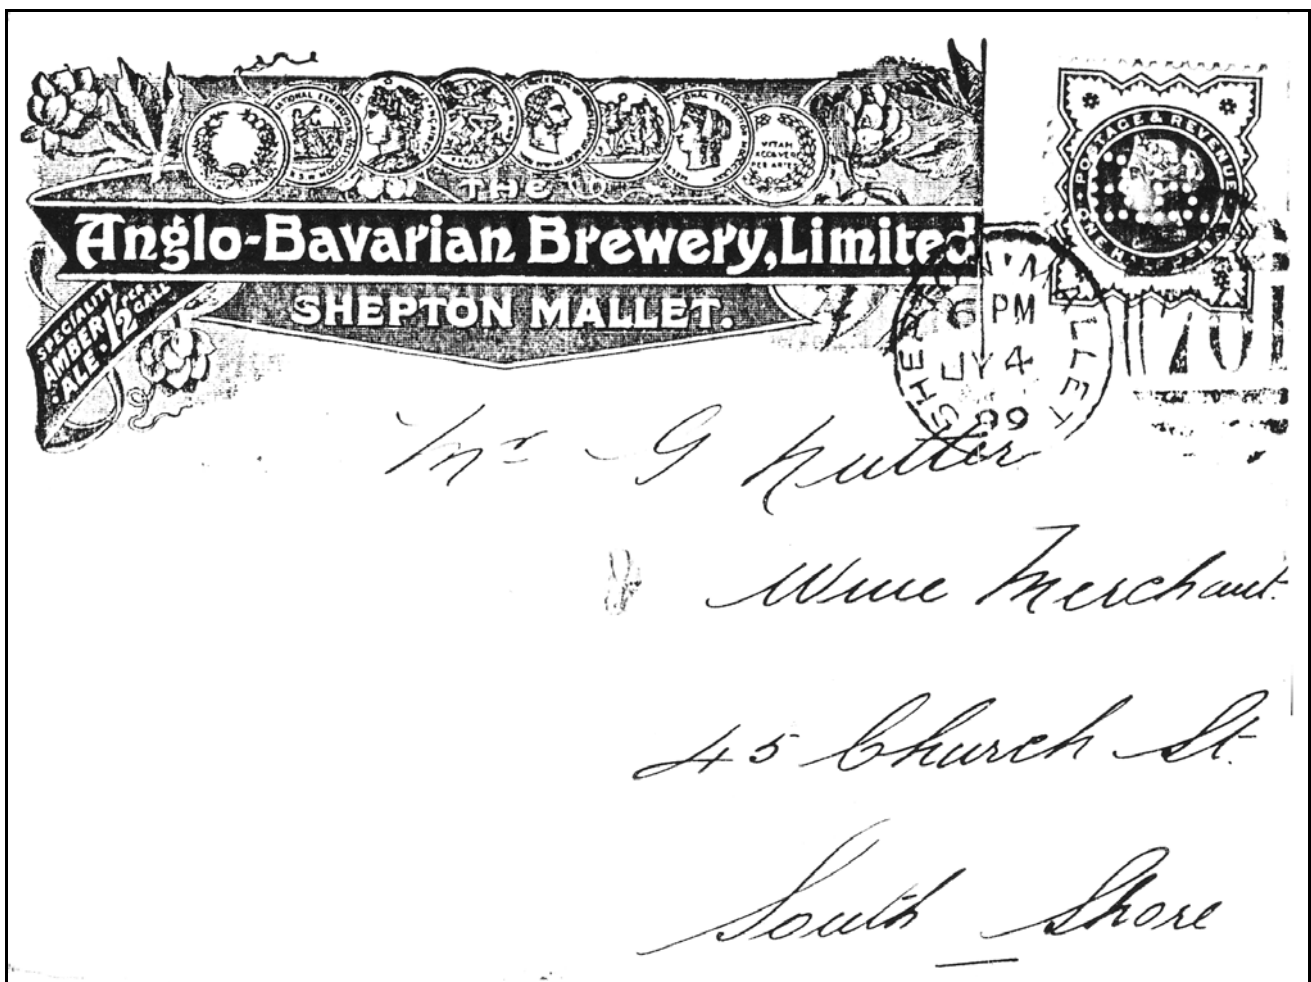 THE
Anglo-Bavarian Brewery, Limited
SHEPTON MALLET.
SPECIALITY
AMBER
ALE. 1/2 PER GALL
POSTAGE & REVENUE
ONE HALFPENNY
VITAM
EXCOLUERE
PER ARTES
SHEPTON MALLET
6 PM
JY 4
99
701
Mr G Nutter
Wine Merchant.
45 Church St.
South Shore